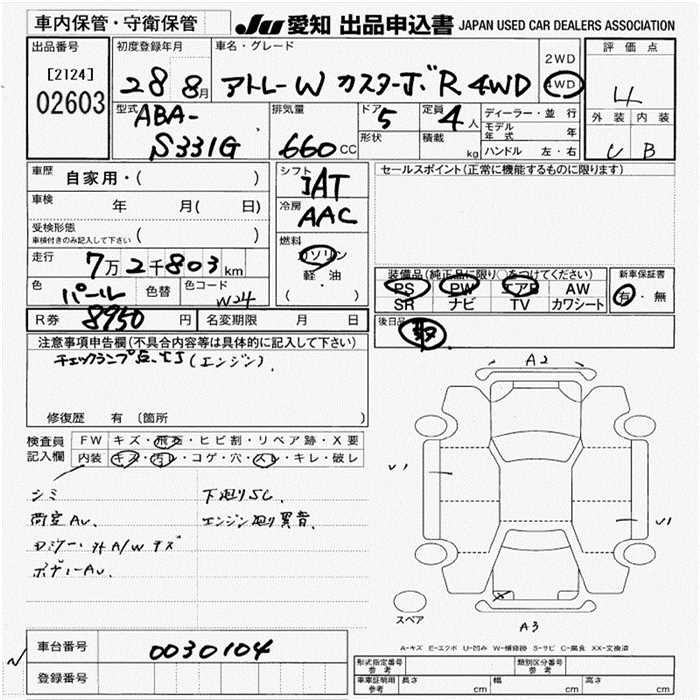 車内保管・守衛保管
JU 愛知 出品申込書 JAPAN USED CAR DEALERS ASSOCIATION
出品番号
[2124]
02603
初度登録年月
28 8月
車名・グレード
アトレーW カスターボR 4WD
2WD
4WD
評価点
4
外装 内装
C B
型式
ABA-
S331G
排気量
660 CC
ドア
5
形状
定員
4 人
積載
kg
ディーラー・並行
モデル年式 年
ハンドル 左・右
車歴 自家用・( )
車検 年 月( 日)
受検形態
車検付きのみ記入して下さい ( )
走行 7万2千803 km
色 パール 色替 色コード W24
R券 8950 円 名変期限 月 日
シフト
IAT
冷房
AAC
燃料
ガソリン
軽・油
( )
セールスポイント(正常に機能するものに限ります)
装備品(純正品に限り○をつけてください)
PS PW エアB AW
SR ナビ TV カワシート
新車保証書
有・無
後日品
取
注意事項申告欄(不具合内容等は具体的に記入して下さい)
チェックランプ点灯(エンジン).
修復歴 有 〔箇所 〕
検査員
記入欄
FW キズ・飛石・ヒビ割・リペア跡・X要
内装 キズ・汚レ・コゲ・穴・スレ・キレ・破レ
シミ
下廻りSC.
荷室AU.
エンジン廻り異音.
ロジャー・外A/Wキズ
ボディーAU.
A2
V1
V1
A3
スペア
A-キズ E-エクボ U-凹ミ W-補修跡 S-サビ C-腐食 XX-交換済
車台番号 0030104
登録番号
N
型式指定番号
参考
類別区分番号
参考
車庫証明用
参考
長さ cm 幅 cm 高さ cm